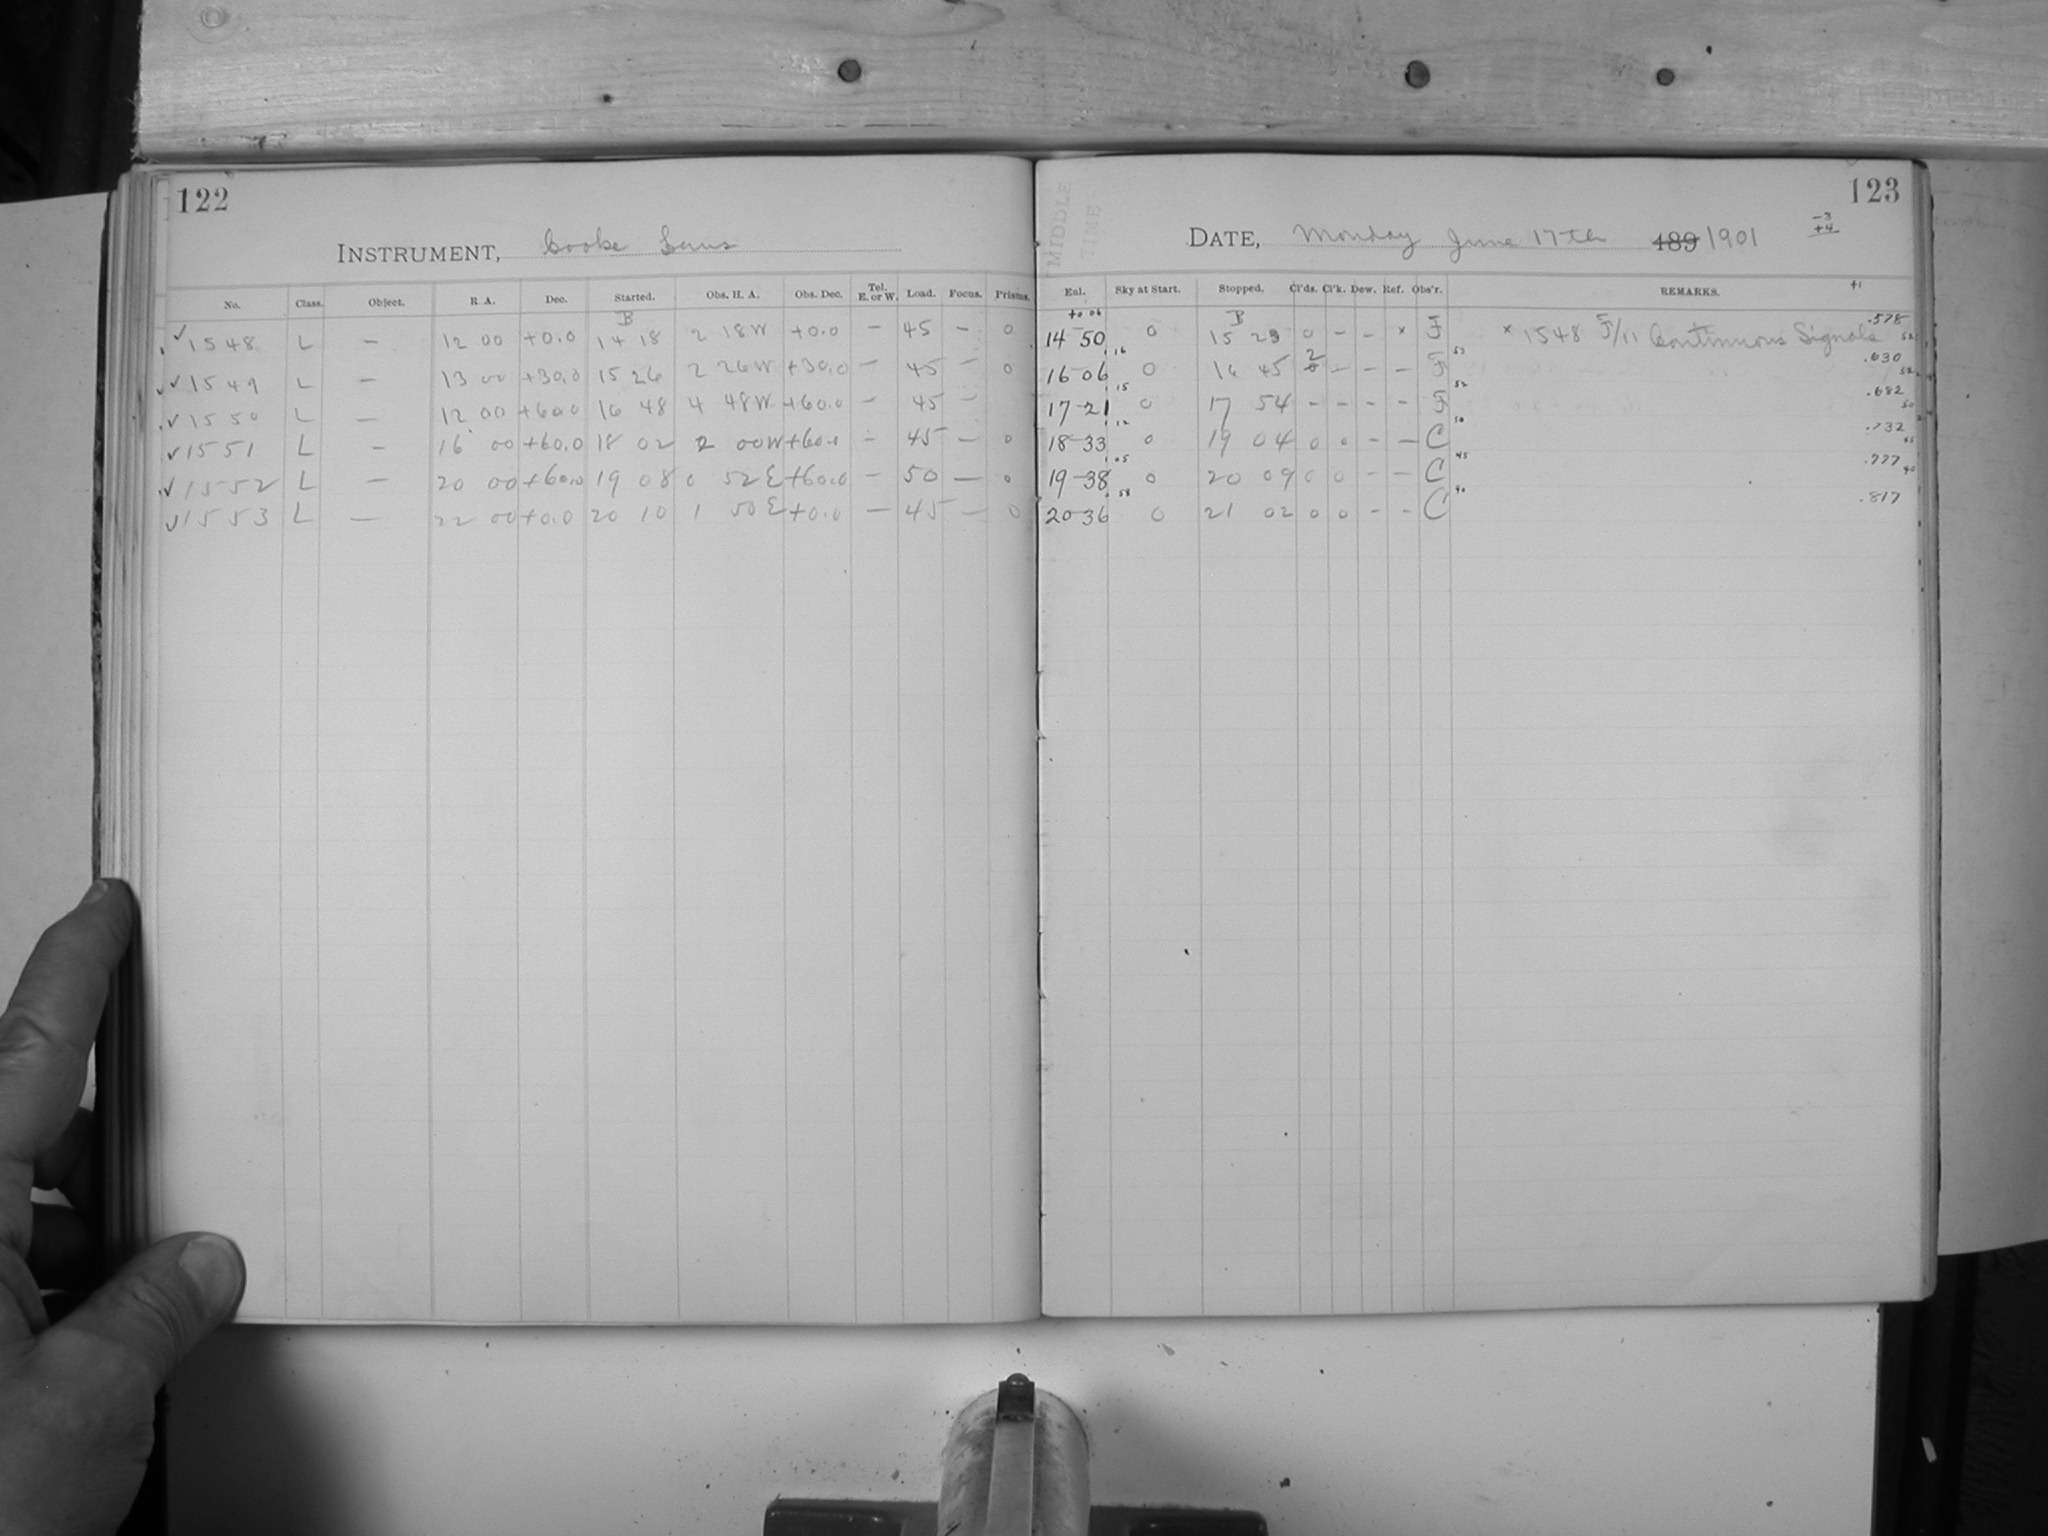 122
INSTRUMENT, Cooke Lens
No. Class. Object. R. A. Dec. Started. Obs. H. A. Obs. Dec. Tel. E. or W. Load. Focus. Prisms.
B
✓ 1548 L — 12 00 +0.0 14 18 2 18W +0.0 — 45 — 0
✓✓ 1549 L — 13 00 +30.0 15 26 2 26W +30.0 — 45 — 0
✓ 1550 L — 12 00 +60.0 16 48 4 48W +60.0 — 45 —
✓ 1551 L — 16 00 +60.0 18 02 2 00W +60.0 — 45 — 0
✓ 1552 L — 20 00 +60.0 19 08 0 52E +60.0 — 50 — 0
✓ 1553 L — 22 00 +0.0 20 10 1 50E +0.0 — 45 — 0
123
MIDDLE TIME
DATE, Monday June 17th 189 1901
-3
+4
+1
Enl. Sky at Start. Stopped. Cl'ds. Cl'k. Dew. Ref. Obs'r. REMARKS.
+0 06 B
14 50 0 15 23 0 — — × F × 1548 F/11 Continuous Signals .578
16 06 0 16 45 2 — — — F .630
17 21 0 17 54 — — — — F .682
18 33 0 19 04 0 0 — — C .732
19 38 0 20 09 0 0 — — C .777
20 36 0 21 02 0 0 — — C .817